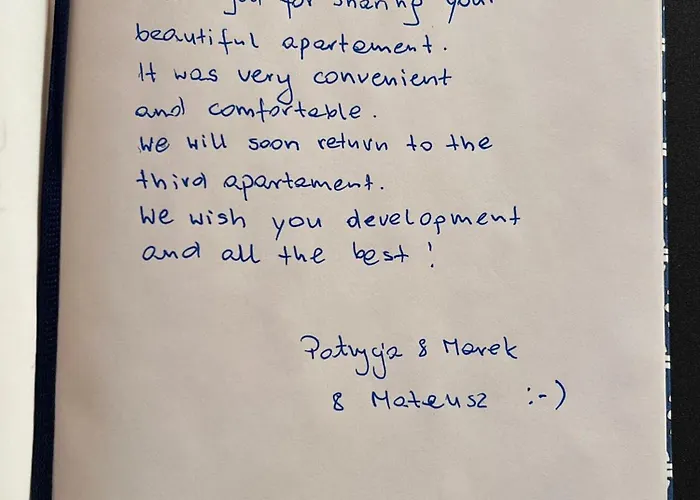 you for sharing your
beautiful apartement.
It was very convenient
and comfortable.
We will soon return to the
third apartement.
We wish you development
and all the best!
Patrycja & Marek
& Mateusz :-)